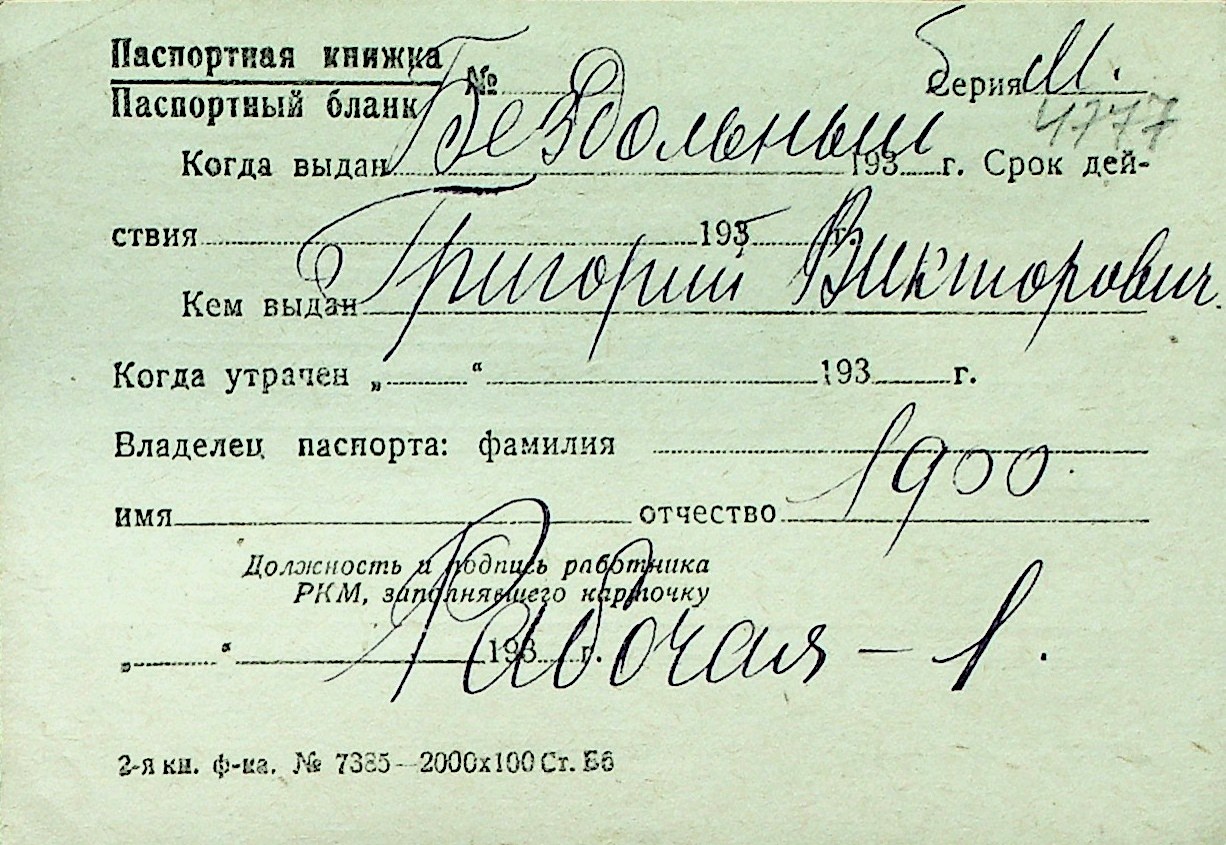 Паспортная книжка № Серия
Паспортный бланк
б/м.
4777
Бездольный
Когда выдан 193 г. Срок дей-
ствия 193 г.
Григорий Викторович
Кем выдан
Когда утрачен „ “ 193 г.
Владелец паспорта: фамилия
1900
имя отчество
Должность и подпись работника
РКМ, заполнявшего карточку
Рабочая – 1.
„ “ 193 г.
2-я кн. ф-ка. № 7385—2000х100 Ст. Б6